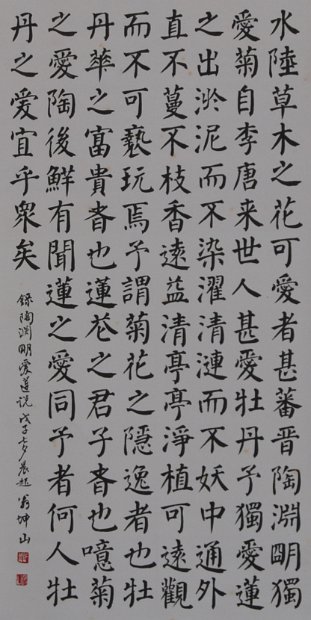 水陸草木之花可愛者甚蕃晉陶淵明獨
愛菊自李唐来世人甚愛牡丹予獨愛蓮
之出淤泥而不染濯清漣而不妖中通外
直不蔓不枝香遠益清亭亭淨植可遠觀
而不可褻玩焉予謂菊花之隱逸者也牡
丹華之富貴者也蓮花之君子者也噫菊
之愛陶後鮮有聞蓮之愛同予者何人牡
丹之愛宜乎眾矣
録陶渊明愛蓮説戊子七夕晨起翁坤山